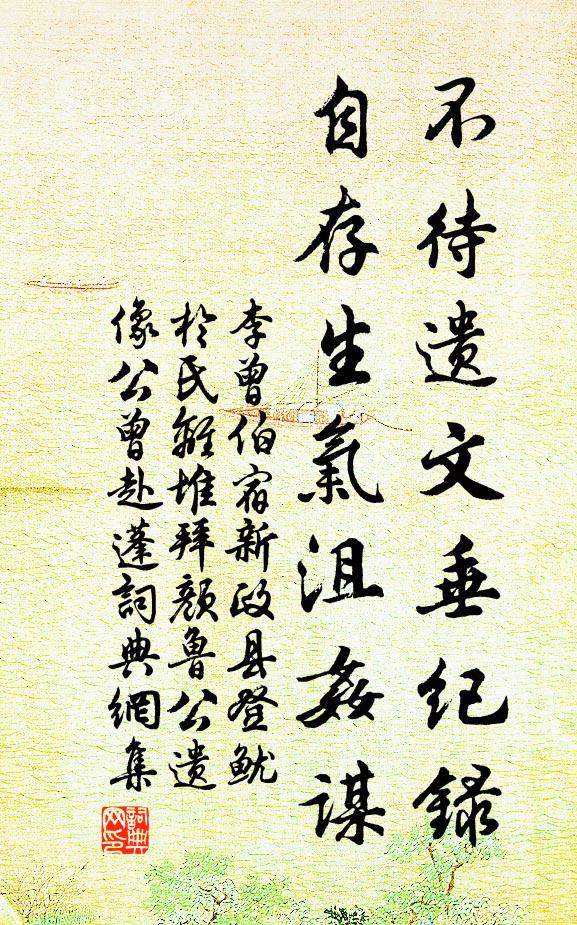 不待遗文垂纪录
自存生氣沮姦謀
李曾伯宿新政县登鱿
於氏離堆拜颜鲁公遗
像公曾赴蓬詞典網集
詞典網印